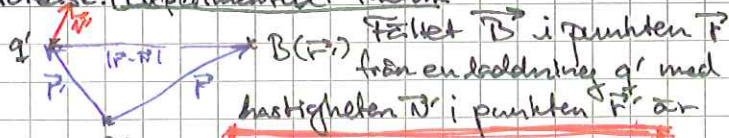 q' |r̄-r̄'| B(r̄,) Fältet B̄ i punkten r̄
r̄' r̄ från en laddning q' med
hastigheten v̄' i punkten r̄' är